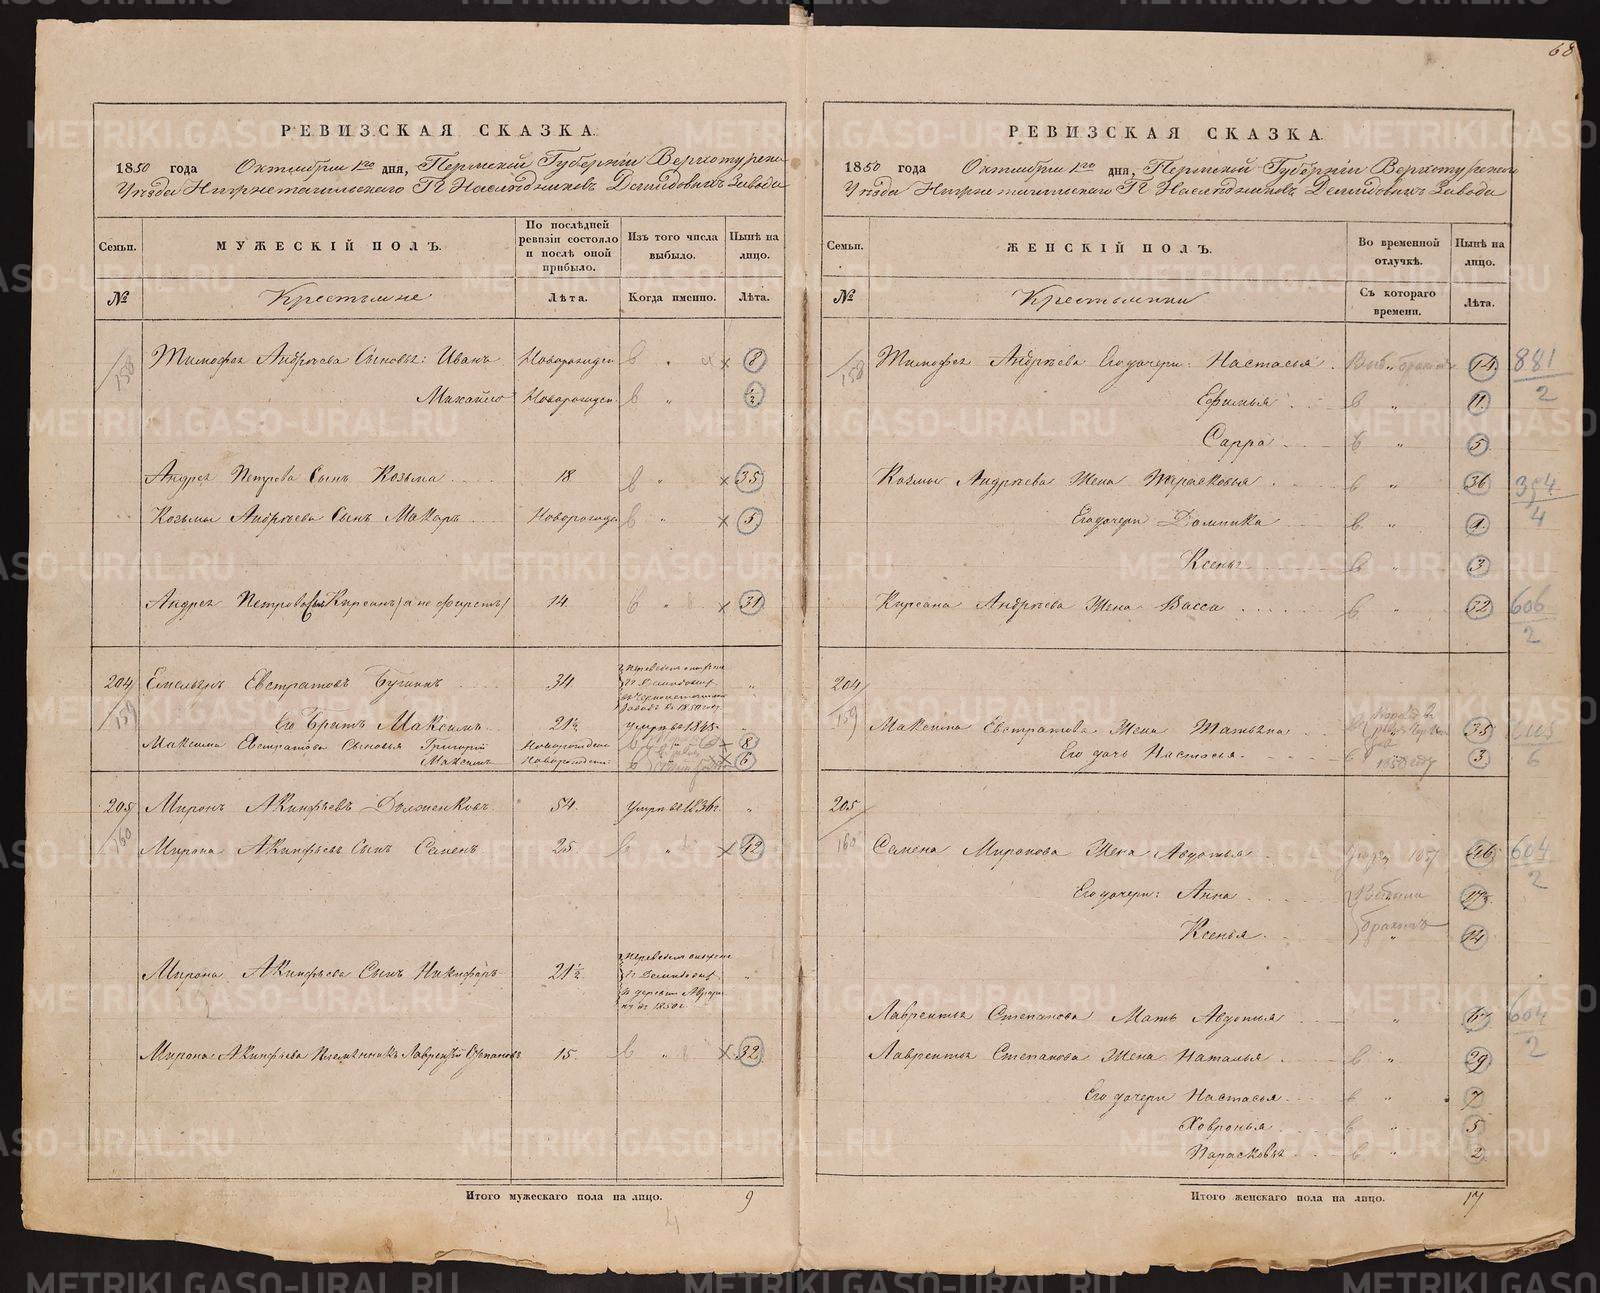 68
РЕВИЗСКАЯ СКАЗКА.
1850 года Октября 1го дня, Пермской Губерніи Верхотурскаго
Уѣзда Нижнетагильскаго Гг Наслѣдниковъ Демидовыхъ Завода
Семьи. МУЖЕСКІЙ ПОЛЪ. По послѣдней ревизіи состояло и послѣ оной прибыло. Изъ того числа выбыло. Нынѣ на лицо.
№ Крестьяне Лѣта. Когда именно. Лѣта.
158 Тимофея Андреева Сыновья: Иванъ Новорожден 8
Михайло Новорожден ½
Андрея Петрова Сынъ Козьма 18 35
Козьмы Андреева Сынъ Макаръ Новорожден 5
Андрея Петрова Сынъ Кирсанъ (а не Фирстъ) 14. 31
204 Емельянъ Евстратовъ 34
159 Его Братъ Максимъ 21½ Умеръ въ 1845
Максима Евстратова Сыновья Григорій Новорожден 8
Максимъ Новорожден 6
205 Миронъ Акинфіевъ Долженковъ 54. Умеръ въ 1836г.
160 Мирона Акинфіева Сынъ Семенъ 25. 42
Мирона Акинфіева Сынъ Никифоръ 21½
въ 1850 г.
Мирона Акинфіева Племянникъ Лаврентій Степановъ 15. 32
Итого мужескаго пола на лицо. 9
4
РЕВИЗСКАЯ СКАЗКА.
1850 года Октября 1го дня, Пермской Губерніи Верхотурскаго
Уѣзда Нижнетагильскаго Гг Наслѣдниковъ Демидовыхъ Завода
Семьи. ЖЕНСКІЙ ПОЛЪ. Во временной отлучкѣ. Нынѣ на лицо.
№ Крестьянки Съ котораго времени. Лѣта.
158 Тимофея Андреева Его дочери: Настасья 14. 881/2
Ефимья 11.
Сарра 5
Козьмы Андреева Жена Парасковья 36 354/4
Его дочери Домника 9.
Ксенья 3
Кирсана Андреева Жена Васса 32 606/2
204
159 Максима Евстратова Жена Татьяна 35
Его дочь Настасья 3 6
205
160 Семена Миронова Жена Авдотья 46 604/2
Его дочери: Анна 17½
Ксенья 14
Лаврентья Степанова Мать Авдотья 604/2
Лаврентья Степанова Жена Наталья 29
Его дочери Настасья 7
Ховронья 5
Парасковья 2
Итого женскаго пола на лицо. 17
METRIKI.GASO-URAL.RU